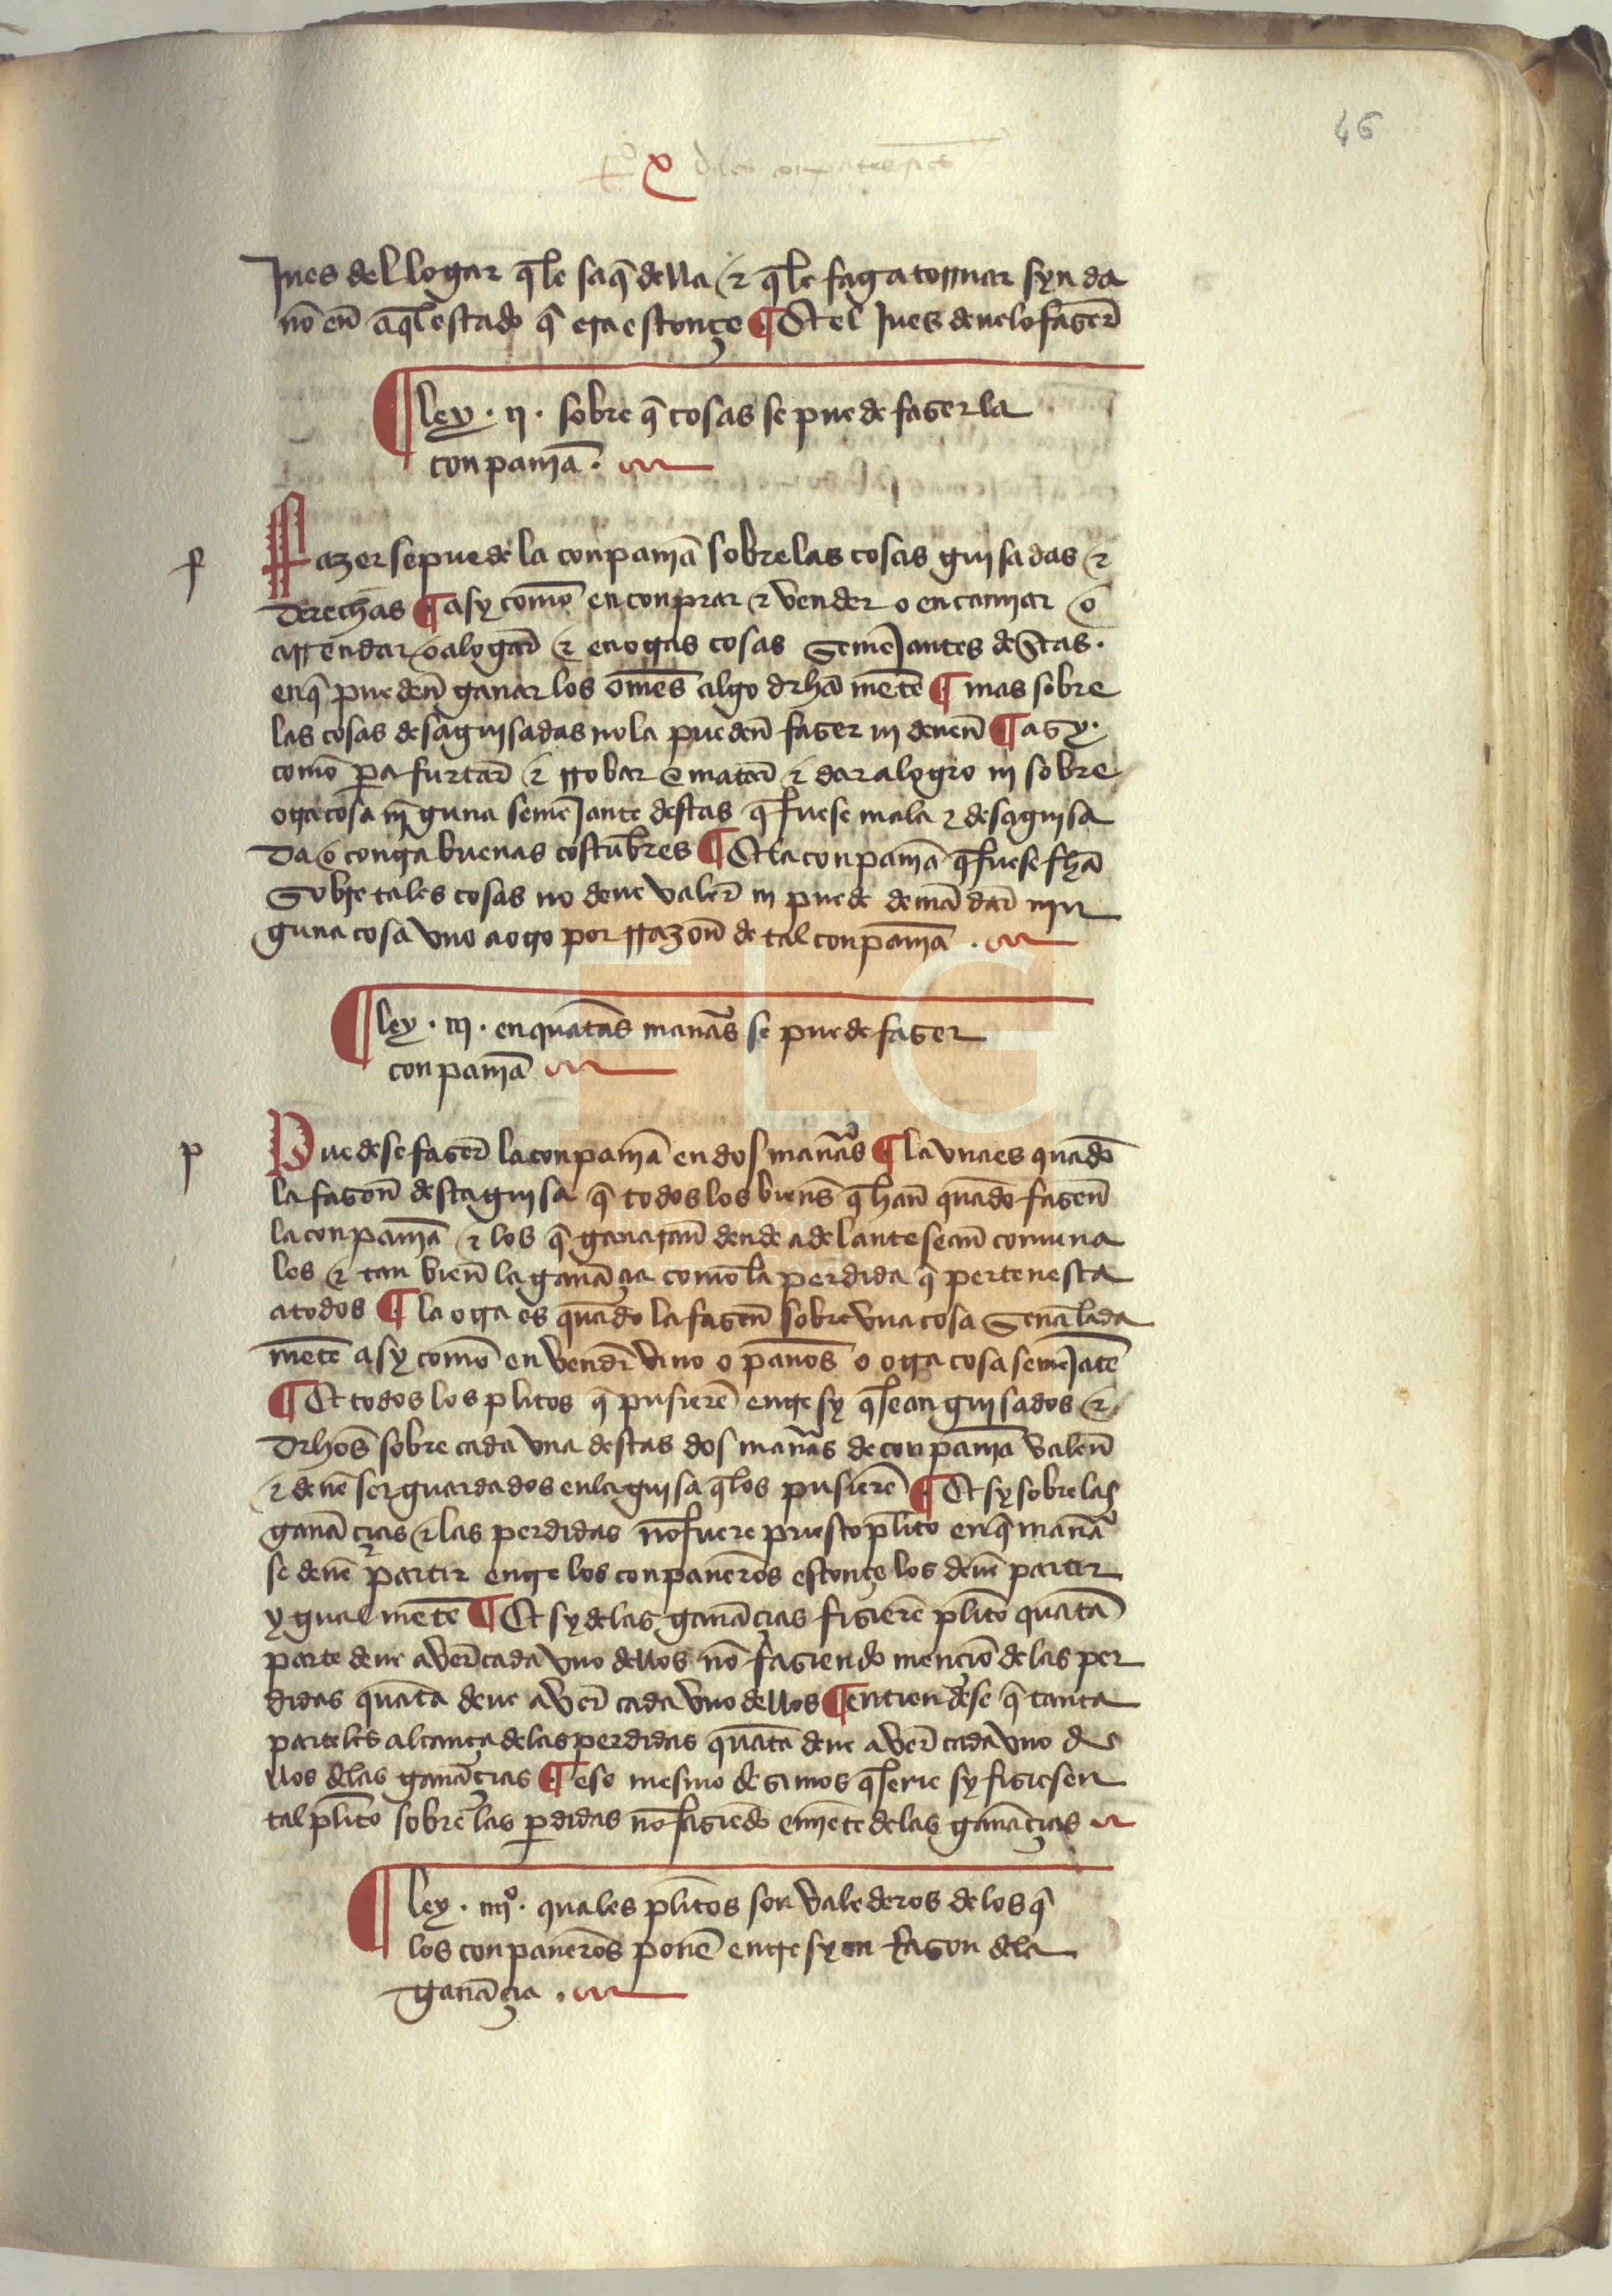 46
x
Jues del logar q̃ le saq̃ della ⁊ q̃ le faga tornar syn da
ño en aq̃l estado q̃ era estonçe ¶ Et el Jues deuelo faser
¶ ley . ij . sobre q̃ cosas se puede faser la
conpañia .
f
Fazer se puede la conpañia sobre las cosas guisadas ⁊
derechas ¶ asy como en conprar ⁊ vender o en camiar o
arrendar o alogar ⁊ en otras cosas semejantes destas .
en q̃ pueden ganar los om̃es algo drha mẽte ¶ mas sobre
las cosas desaguisadas no la pueden faser ni deuen ¶ asy .
como pa furtar ⁊ rrobar o matar ⁊ dar a logro ni sobre
otra cosa nĩguna semejante destas q̃ fuese mala ⁊ desaguisa
da o contra buenas costũbres ¶ Et la conpañia q̃ fuese fha
sobre tales cosas no deue valer ni puede demãdar nin
guna cosa vno a otro por rrazon de tal conpañia .
¶ ley . iij . en quãtas manãs se puede faser
conpañia
p
Puedese faser la conpañia en dos manãs ¶ la vna es quãdo
la fasen desta guisa q̃ todos los biẽns q̃ han quãdo fasen
la conpañia ⁊ los q̃ ganaran dende adelante sean comuna
les ⁊ tan bien la ganãçia como la perdida q̃ pertenesca
a todos ¶ la otra es quãdo la fasen sobre vna cosa señalada
mẽte asy como en vendr̃ vino o paños o otra cosa semejãte
¶ Et todos los plitos q̃ pusierẽ entre sy q̃ sean guisados ⁊
drhos sobre cada vna destas dos manãs de conpañia valen
⁊ deuẽ ser guardados en la guisa q̃ los pusierẽ ¶ Et sy sobre las
ganãcias ⁊ las perdidas nõ fuere puesto plito en q̃ manã
se deuẽ partir entre los conpañeros estonçe los deuẽ partir
ygual mẽte ¶ Et sy de las ganãçias fisierẽ plito quãta
parte deue aver cada vno dellos nõ fasiendo mençiõ de las per
didas quãta deue aver cada vno dellos ¶ entiendese q̃ tanta
parte les alcança de las perdidas quãta deue aver cada vno de
llos de las ganãçias ¶ eso mesmo desimos q̃ serie sy fisiesen
tal plito sobre las pdidas nõ fasiẽdo emiẽte de las ganãçias
¶ ley . iiijº . quales plitos son valederos de los q̃
los conpañeros ponẽ entre sy en rason dela
ganãçia .